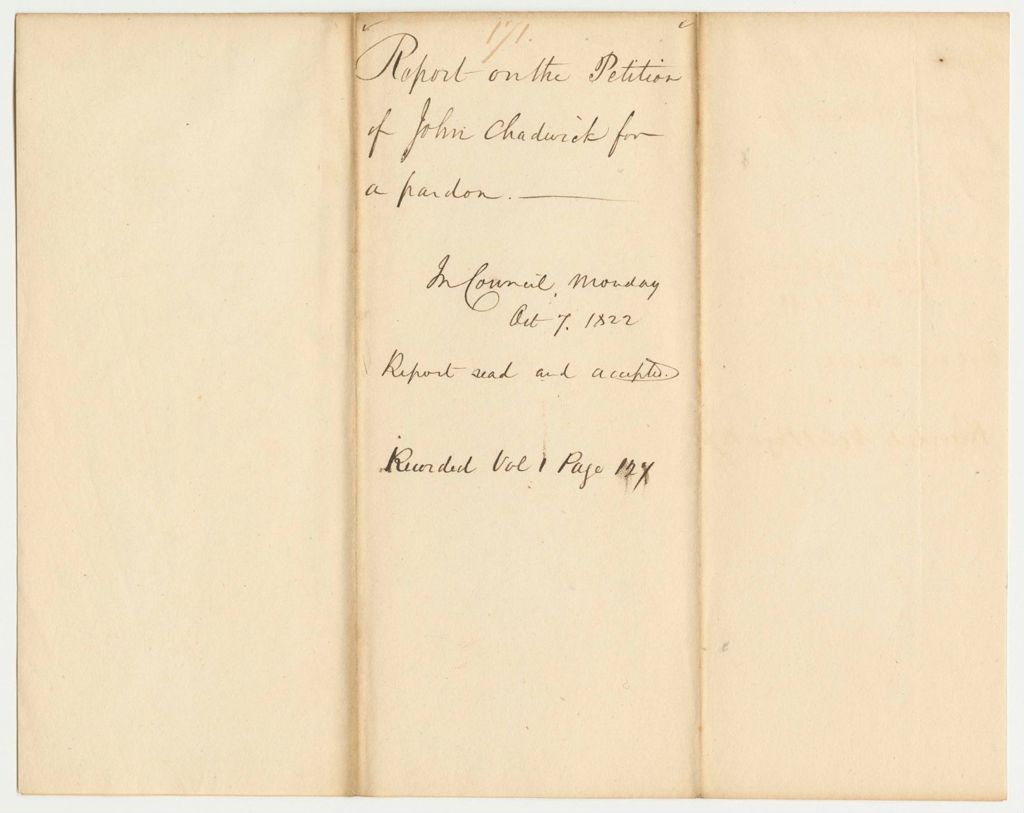 171.
Report on the Petition
of John Chadwick for
a pardon.
In Council, Monday
Oct 7. 1822
Report read and accepted.
Recorded Vol 1 Page 127